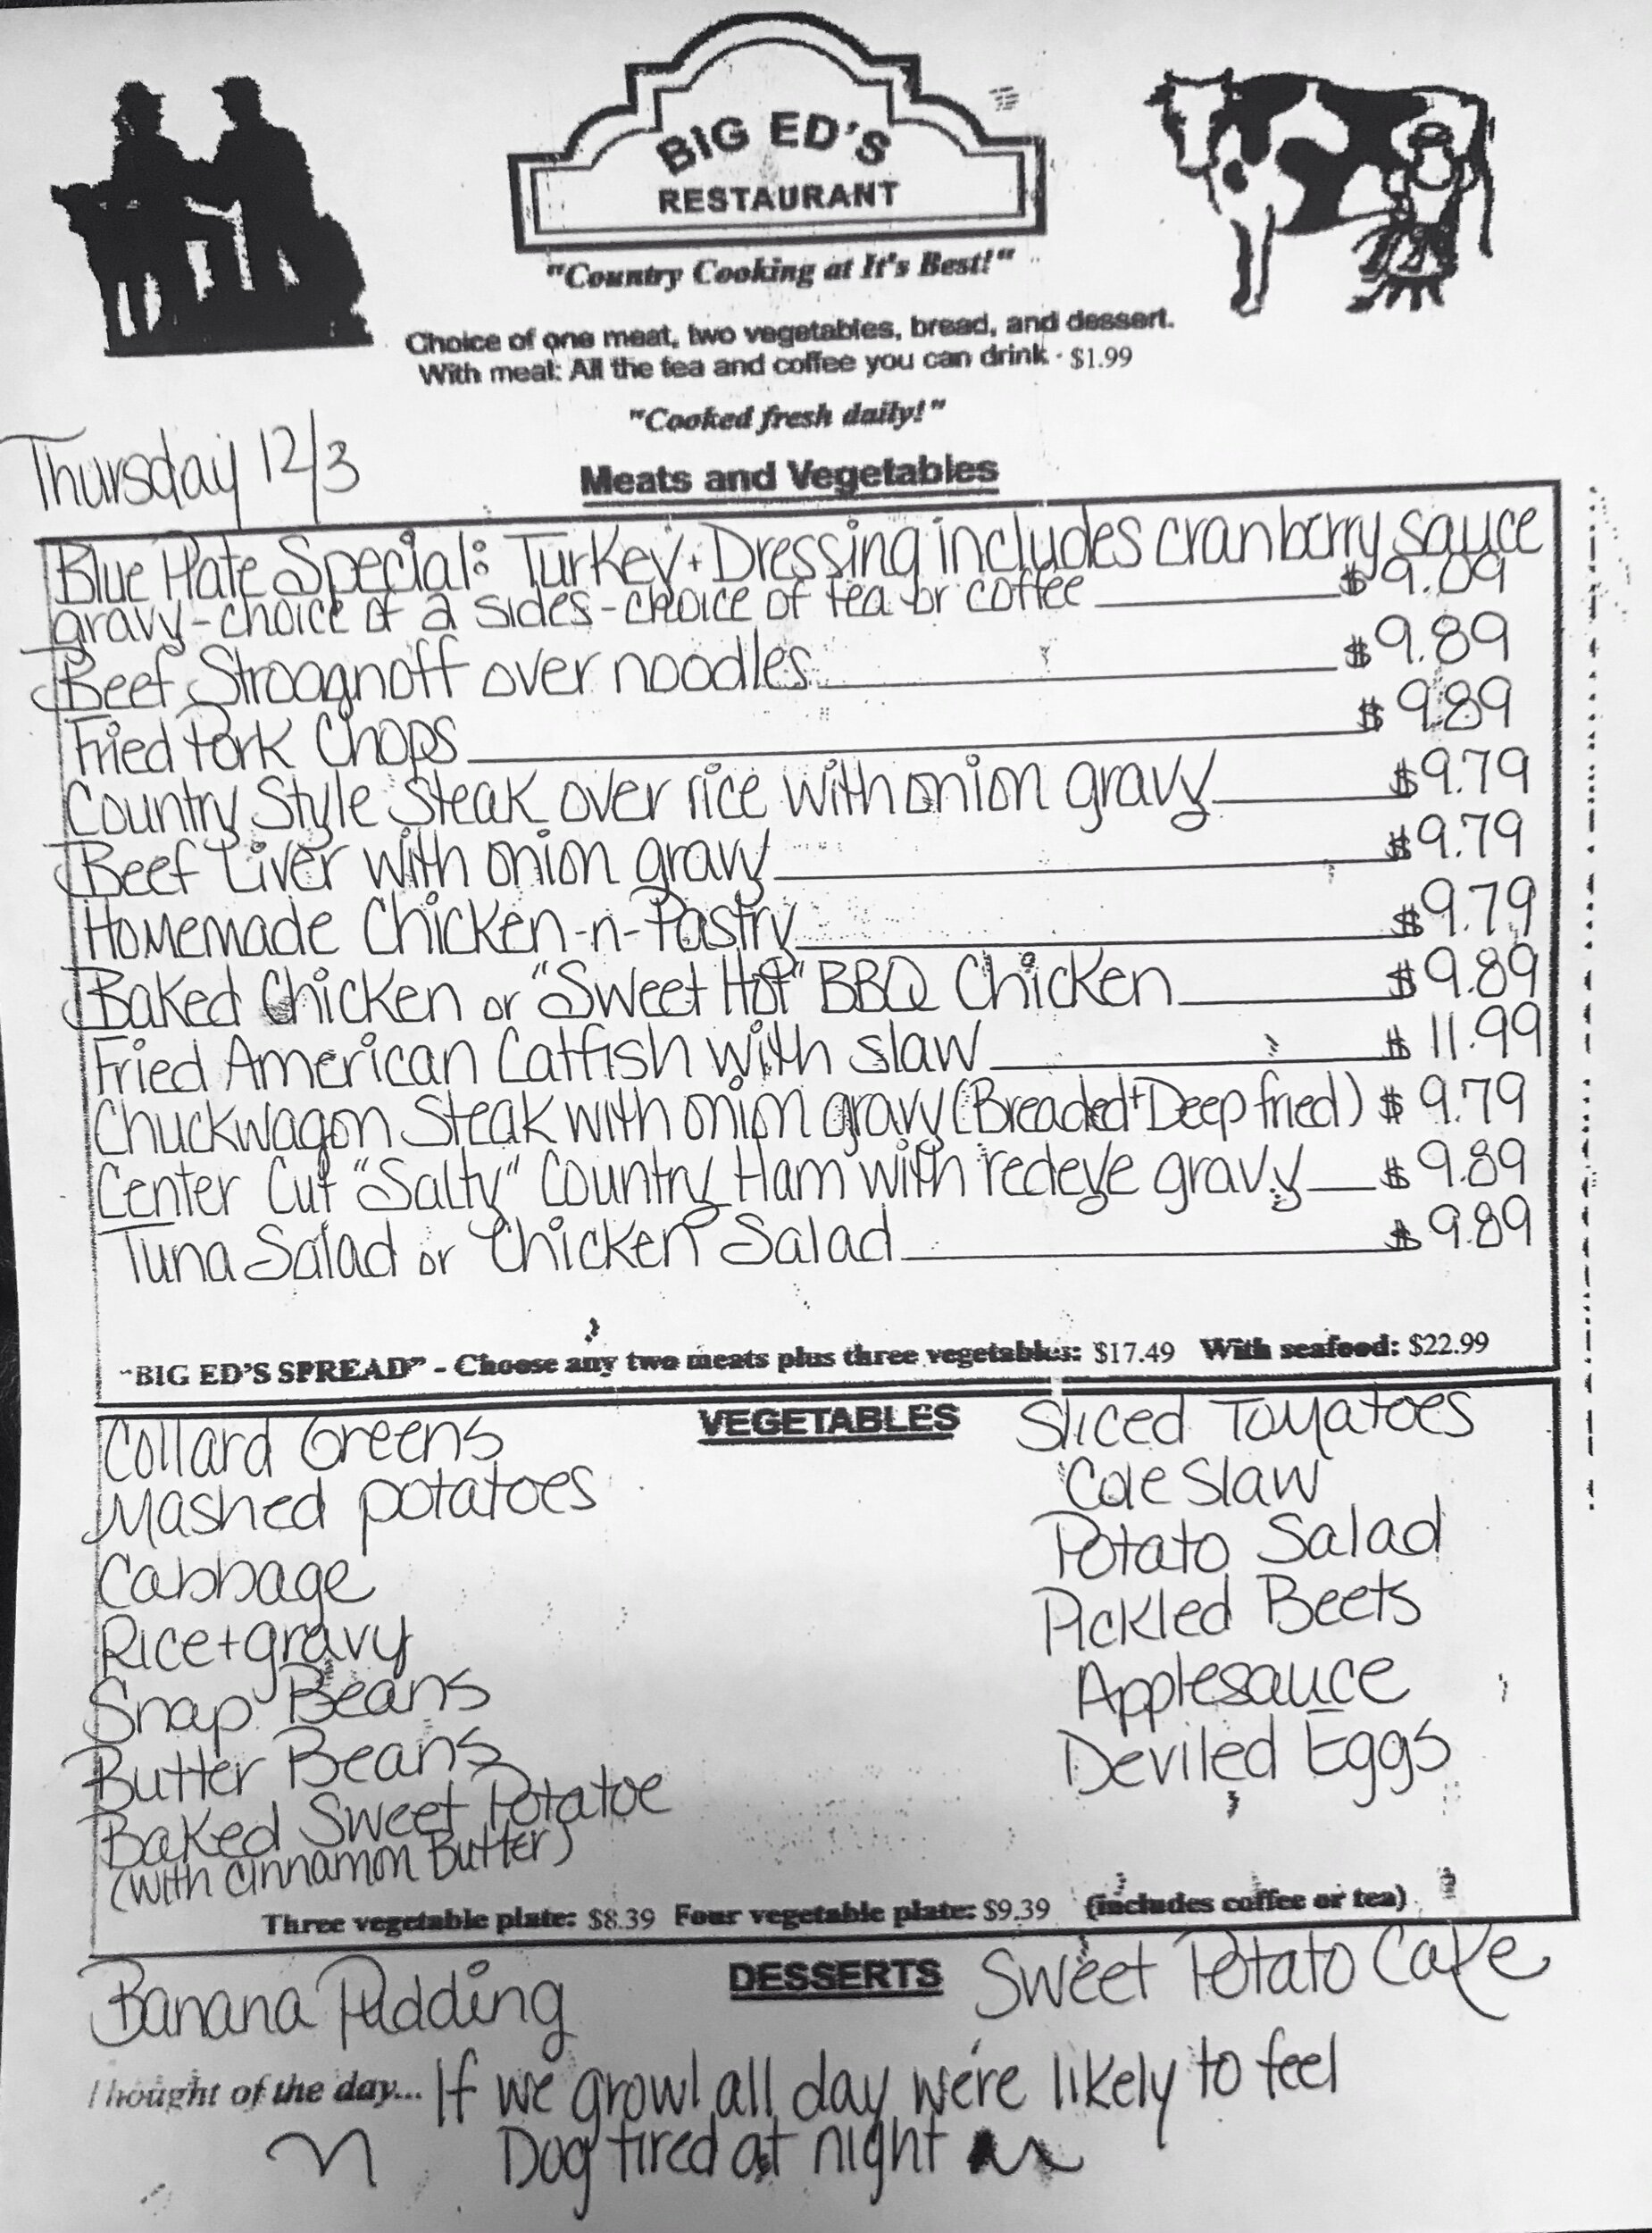 BIG ED'S
RESTAURANT
"Country Cooking at It's Best!"
Choice of one meat, two vegetables, bread, and dessert.
With meal: All the tea and coffee you can drink · $1.99
"Cooked fresh daily!"
Thursday 12/3
Meats and Vegetables
Blue Plate Special: Turkey + Dressing includes cranberry sauce
gravy - choice of 2 sides - choice of tea or coffee $9.09
Beef Stroagnoff over noodles $9.89
Fried Pork Chops $9.89
Country Style Steak over rice with onion gravy $9.79
Beef Liver with onion gravy $9.79
Homemade Chicken-n-Pastry $9.79
Baked Chicken or "Sweet Hot" BBQ Chicken $9.89
Fried American Catfish with slaw $11.99
Chuckwagon Steak with onion gravy (Breaded + Deep fried) $9.79
Center Cut "Salty" Country Ham with redeye gravy $9.89
Tuna Salad or Chicken Salad $9.89
"BIG ED'S SPREAD" - Choose any two meats plus three vegetables: $17.49 With seafood: $22.99
VEGETABLES
Collard Greens
Mashed potatoes
Cabbage
Rice + gravy
Snap Beans
Butter Beans
Baked Sweet Potatoe
(with Cinnamon Butter)
Sliced Tomatoes
Cole Slaw
Potato Salad
Pickled Beets
Applesauce
Deviled Eggs
Three vegetable plate: $8.39 Four vegetable plate: $9.39 (includes coffee or tea)
DESSERTS
Banana Pudding
Sweet Potato Cake
Thought of the day... If we growl all day we're likely to feel
Dog tired at night